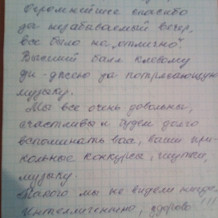 Огромнейшее спасибо
за незабываемый вечер,
все было на „отлично".
Высший балл клевому
ди-джею за потрясающую
музыку.
Мы все очень довольны,
счастливы и будем долго
вспоминать вас, ваши при-
кольные конкурсы, шутки,
музыку.
Такого мы не видели нигде!
Интеллигентно, здорово!!!